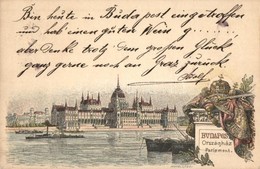 Bin heute in Budapest eingetroffen
und hab einen guten Wein g...
aber denke trotz dem großen Glück
ganz gerne noch an Graz zurück
BUDAPEST
Országház
Parlament.